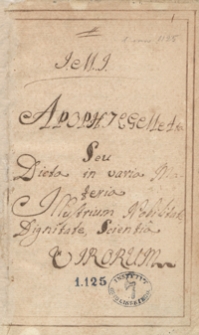 J. M. J.
APOPHTEGMEta
Seu
Dicta in varia Ma-
teria
Illustrium Nobilitate
Dignitate, Scientia
VIRORUM
1.125